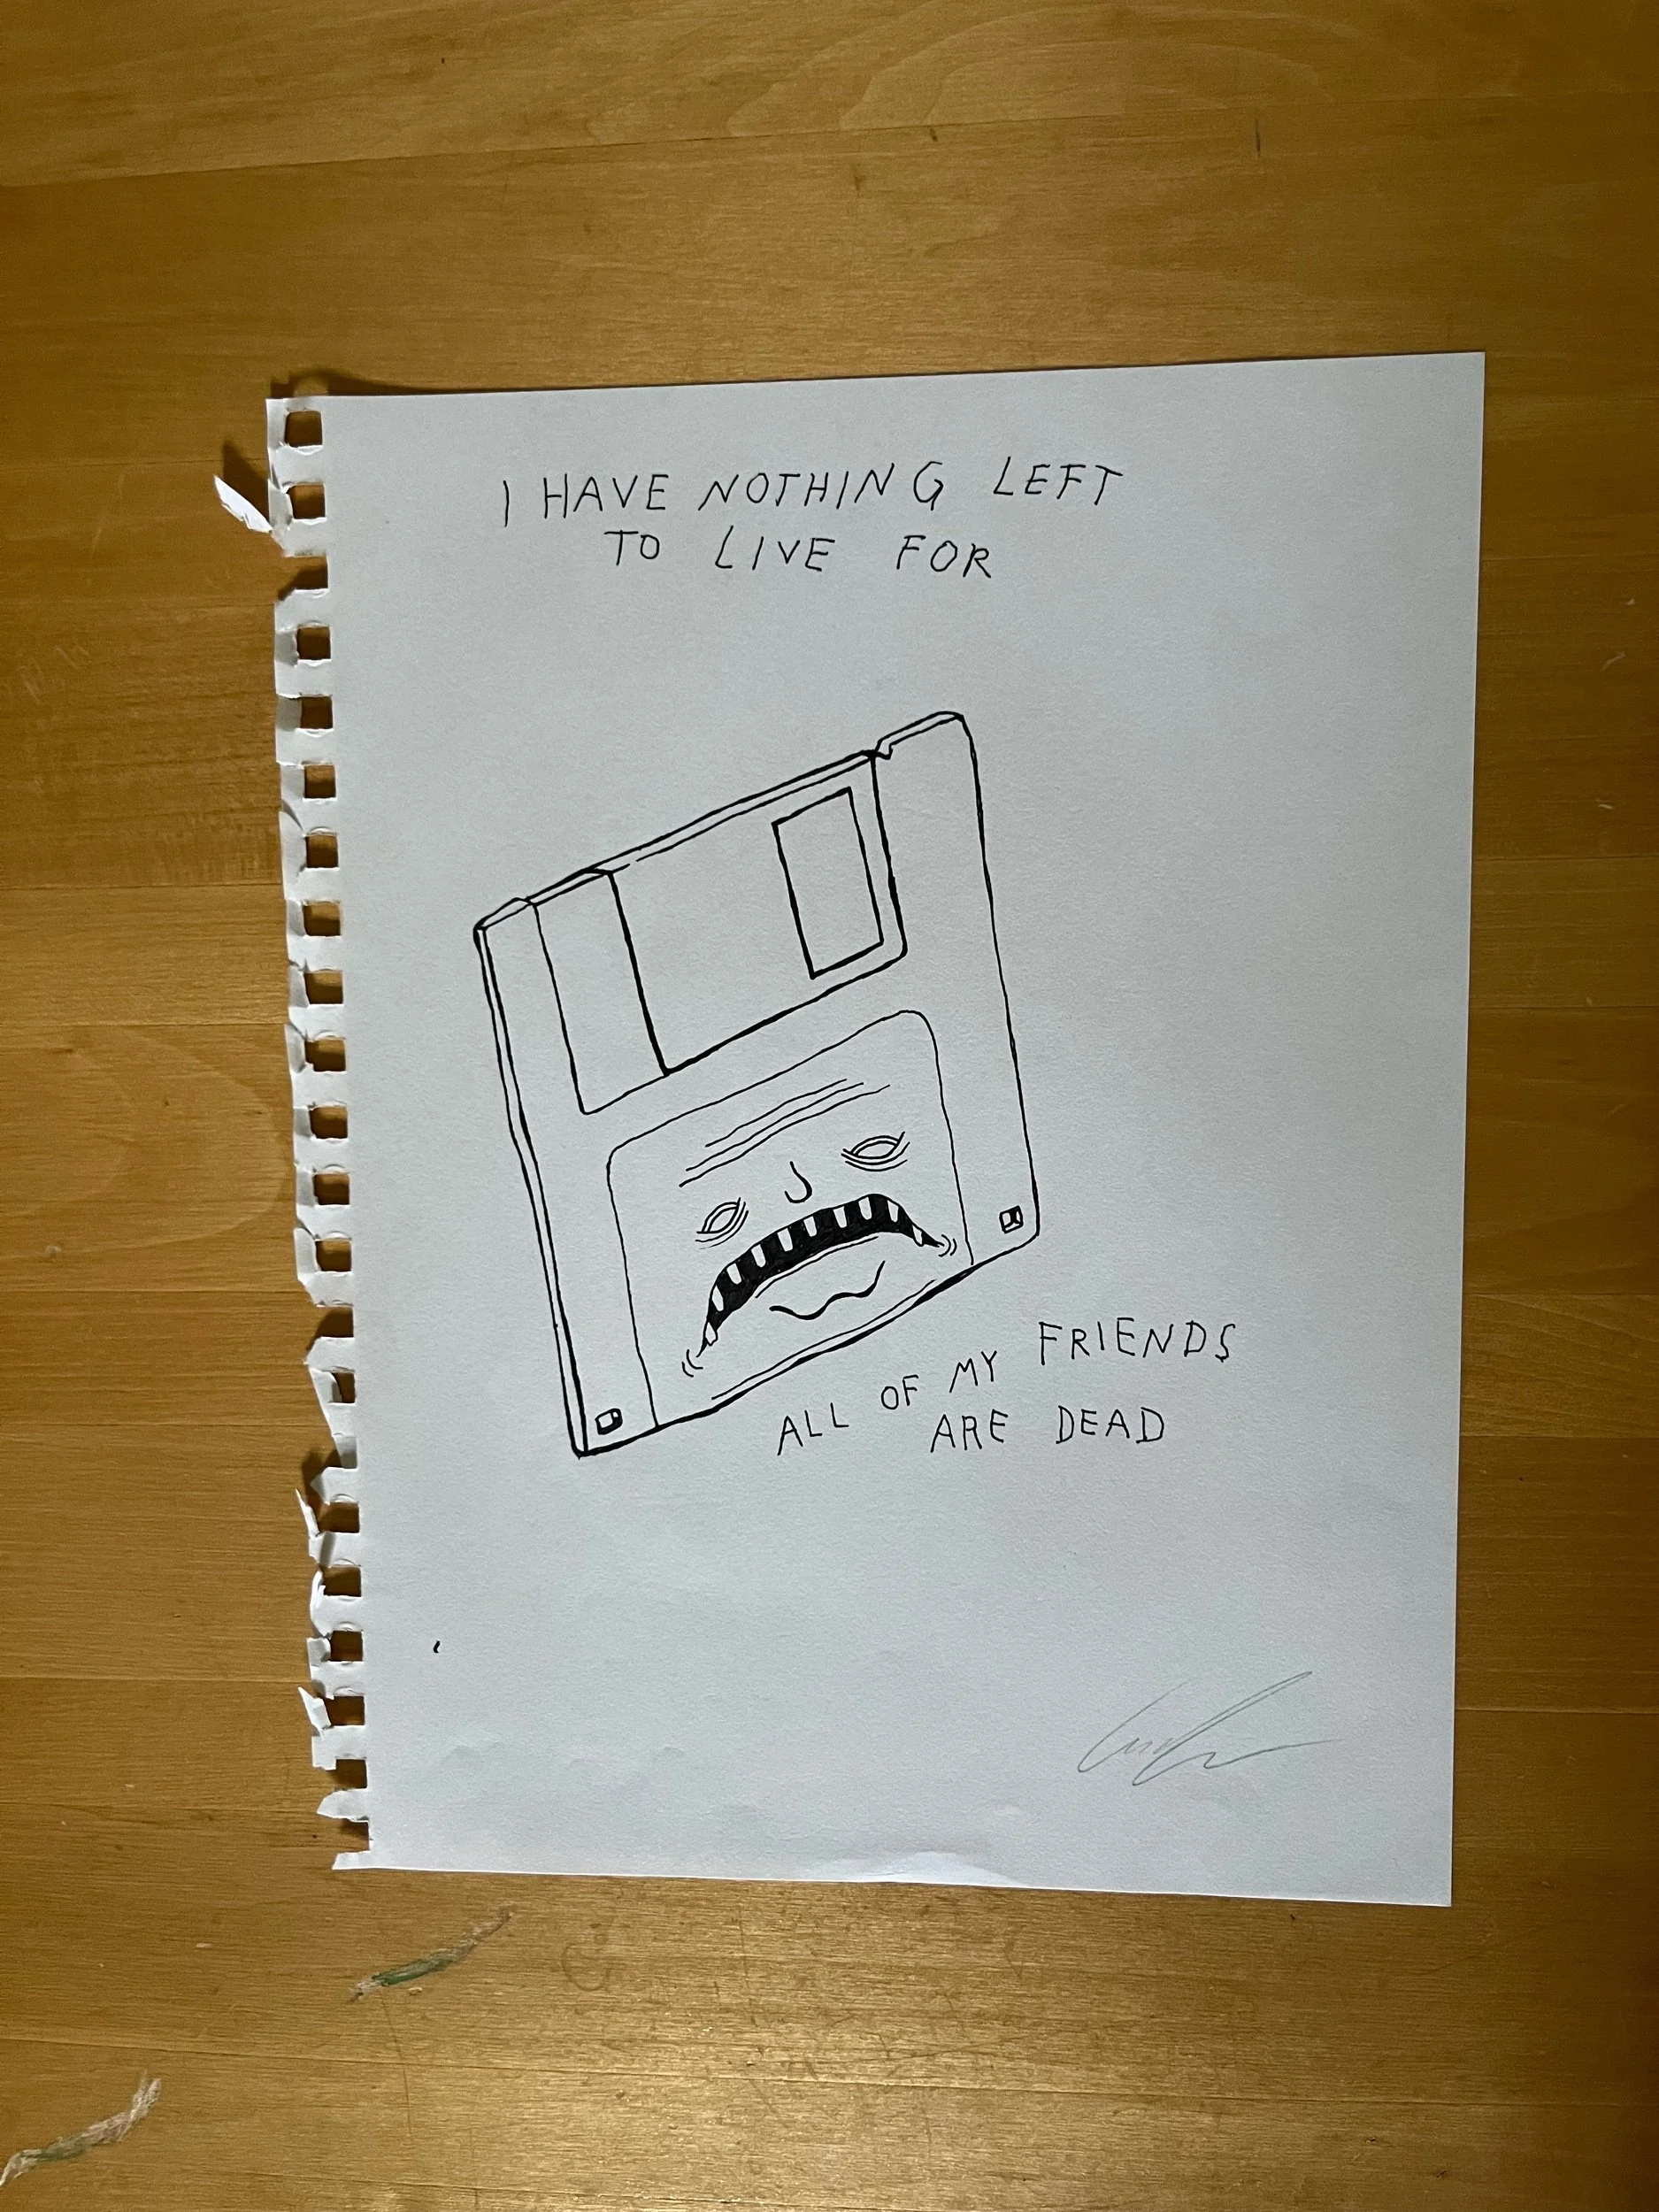 I HAVE NOTHING LEFT
TO LIVE FOR
ALL OF MY FRIENDS
ARE DEAD